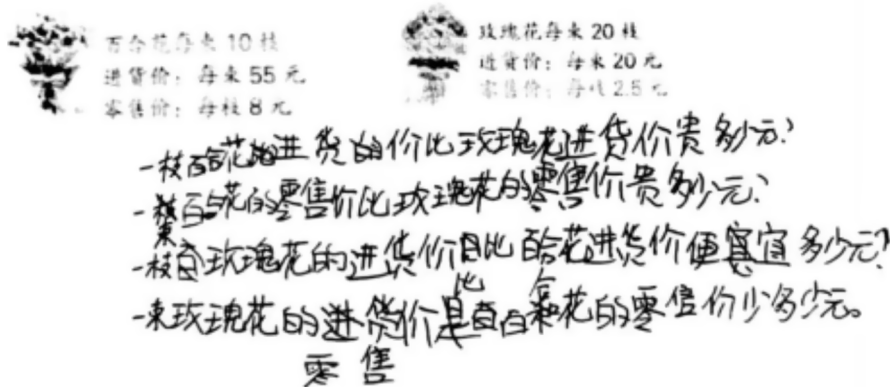 百合花每束 10 枝
进货价：每束 55 元
零售价：每枝 8 元
玫瑰花每束 20 枝
进货价：每束 20 元
零售价：每枝 2.5 元
一枝百合花的进货的价比玫瑰花进货价贵多少元？
一束百合花的零售价比玫瑰花的零售价贵多少元？
一枝玫瑰花的进货价比百合花进货价便宜多少元？
一束玫瑰花的进货价是百合花的零售价少多少元。
比 合
零售